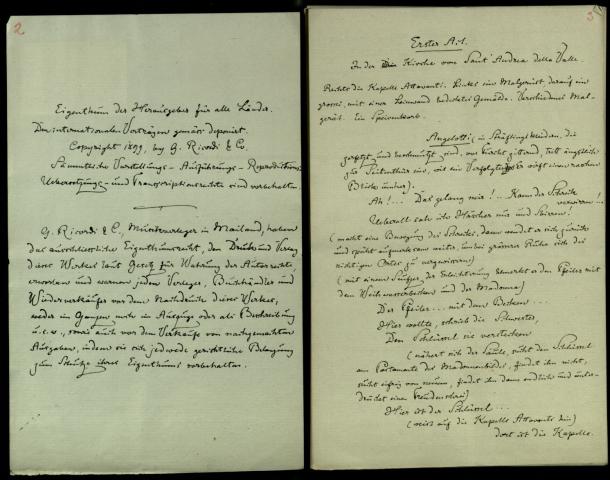 2
Eigenthum der Herausgeber für alle Länder.
Den internationalen Verträgen gemäss deponirt.
Copyright 1899, by G. Ricordi & C.
Sämmtliche Vorstellungs-, Aufführungs-, Reproductions-
Uebersetzungs- und Transcriptionsrechte sind vorbehalten.
G. Ricordi & C., Musikverleger in Mailand, haben
das ausschliessliche Eigenthumsrecht, den Druck und Verlag
dieses Werkes laut Gesetz für Wahrung der Autorrechte
erworben und warnen jeden Verleger, Buchhändler und
Wiederverkäufer vor dem Nachdrucke dieses Werkes,
weder im Ganzen noch im Auszuge oder als Beschreibung
u.s.w., sowie auch vor dem Verkaufe von nachgemachten
Ausgaben, indem sie sich jedwede gerichtliche Belangung
zum Schutze ihres Eigenthums vorbehalten.
3
Erster Act.
In der Kirche von Sant' Andrea della Valle.
Rechts die Kapelle Attavanti. Links ein Malgerüst darauf ein
grosses, mit einer Leinwand bedecktes Gemälde. Verschiedenes Mal-
gerät. Ein Speisenkorb.
Angelotti (in Sträflingskleidern, die
zerfetzt und beschmutzt sind, vor Furcht zitternd, tritt ängstlich
zur Seitenthür ein, wie ein Verfolgter. Er wirft einen raschen
Blick umher).
Ah!... Das gelang mir!..
Ueberall sah ich Häscher nur und Sbirren!
(macht eine Bewegung des Schreckes, dann wendet er sich zurück
und späht aufmerksam weiter, um bei grösserer Ruhe sich des
richtigen Ortes zu vergewissern)
(mit einem Seufzer der Erleichterung bemerkt er den Pfeiler mit
dem Weihwasserbecken und der Madonna)
Der Pfeiler... mit dem Becken...
Hier wollte, schrieb die Schwester,
Den Schlüssel sie verstecken
(nähert sich der Säule, sucht den Schlüssel
am Postamente des Madonnenbildes, findet ihn nicht,
sucht eifrig von neuem, findet ihn dann endlich und unter-
drückt einen Freudenschrei)
Hier ist der Schlüssel...
(weist auf die Kapelle Attavanti hin)
dort ist die Kapelle.